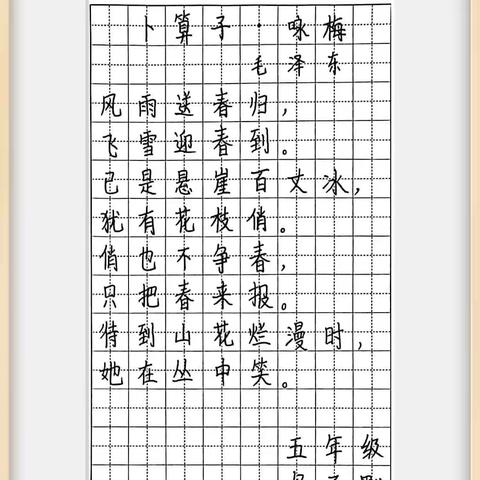 卜算子·咏梅
毛泽东
风雨送春归，
飞雪迎春到。
已是悬崖百丈冰，
犹有花枝俏。
俏也不争春，
只把春来报。
待到山花烂漫时，
她在丛中笑。
五年级